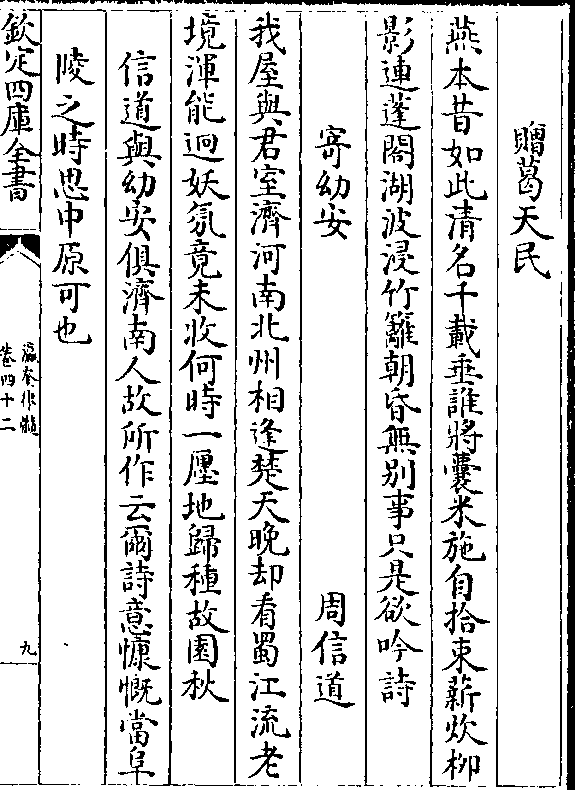 贈葛天民
燕本昔如此清名千載垂誰將囊米施自拾束薪炊柳
影連蓬閣湖波浸竹籬朝昏無別事只是欲吟詩
寄幼安 周信道
我屋與君室濟河南北州相逢楚天晚却看蜀江流老
境渾能迫妖氛竟未收何時一廛地歸種故園秋
信道與幼安俱濟南人故所作云爾詩意慷慨當阜
陵之時思中原可也
欽定四庫全書
瀛奎律髓
卷四十二
九